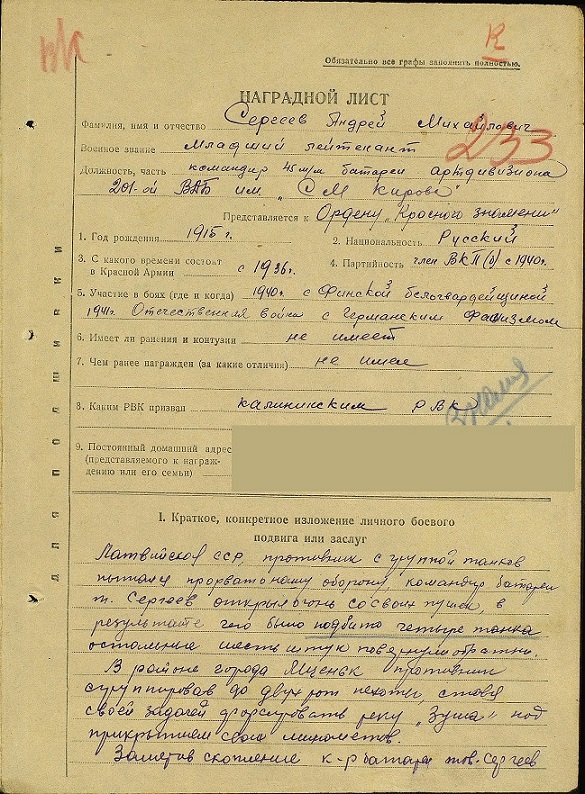 К
Обязательно все графы заполнять полностью.
НАГРАДНОЙ ЛИСТ
Фамилия, имя и отчество Сергеев Андрей Михайлович
233
Военное звание Младший лейтенант
Должность, часть командир 45 м/м батареи артдивизиона
201-ой ВАБ им. „С М Кирова"
Представляется к Ордену „Красного знамени"
1. Год рождения 1915 г. 2. Национальность Русский
3. С какого времени состоит в Красной Армии с 1936 г. 4. Партийность член ВКП(б) с 1940 г.
5. Участие в боях (где и когда) 1940 г. с Финской белогвардейщиной
1941 г. Отечественная война с Германским Фашизмом
6. Имеет ли ранения и контузии не имеет
7. Чем ранее награжден (за какие отличия) не имеет
8. Каким РВК призван Калининским РВК
9. Постоянный домашний адрес
(представляемого к награж-
дению или его семьи)
для подшивки
I. Краткое, конкретное изложение личного боевого
подвига или заслуг
Латвийской ССР, противник с группой танков
пытался прорвать нашу оборону, командир батареи
т. Сергеев открыл огонь со своих пушек, в
результате чего было подбито четыре танка
остальные шесть штук повернули обратно.
В районе города Мценск противник
сгруппировав до двух рот пехоты, ставя
своей задачей форсировать реку „Зуша" под
прикрытием своих минометов.
Заметив скопление к-р батареи тов. Сергеев